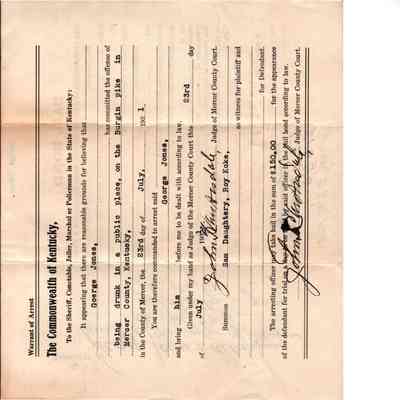 Warrant of Arrest
The Commonwealth of Kentucky,
To the Sheriff, Constable, Jailer, Marshal or Policeman in the State of Kentucky:
It appearing that there are reasonable grounds for believing that
George Jones,
has committed the offense of
being drunk in a public place, on the Burgin pike in
Mercer County, Kentucky,
in the County of Mercer, the 23rd day of July, 1921
You are therefore commanded to arrest said
George Jones,
and bring him before me to be dealt with according to law.
Given under my hand as Judge of the Mercer County Court this 23rd day
of July 192
Judge of Mercer County Court.
Summon Sam Daughtery, Roy Koke,
as witness for plaintiff and
for Defendant.
The arresting officer may take bail in the sum of $150,00 for the appearance
of the defendant for trial on said officer bail bond according to law.
Judge of Mercer County Court.